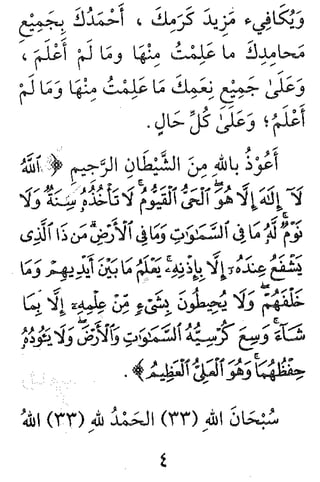 وَيُكَافِيءُ مَزِيدَ كَرَمِكَ ، أَحْمَدُكَ بِجَمِيعِ
مَحَامِدِكَ مَا عَلِمْتُ مِنْهَا وَمَا لَمْ أَعْلَمْ ،
وَعَلَىٰ جَمِيعِ نِعَمِكَ مَا عَلِمْتُ مِنْهَا وَمَا لَمْ
أَعْلَمْ؛ وَعَلَىٰ كُلِّ حَالٍ .
أَعُوذُ بِاللهِ مِنَ الشَّيْطَانِ الرَّجِيمِ ﴿ ٱللَّهُ
لَآ إِلَٰهَ إِلَّا هُوَ ۖ ٱلْحَىُّ ٱلْقَيُّومُ ۚ لَا تَأْخُذُهُۥ سِنَةٌ وَلَا
نَوْمٌ ۚ لَّهُۥ مَا فِى ٱلسَّمَٰوَٰتِ وَمَا فِى ٱلْأَرْضِ ۗ مَن ذَا ٱلَّذِى
يَشْفَعُ عِندَهُۥٓ إِلَّا بِإِذْنِهِۦ ۚ يَعْلَمُ مَا بَيْنَ أَيْدِيهِمْ وَمَا
خَلْفَهُمْ ۖ وَلَا يُحِيطُونَ بِشَىْءٍ مِّنْ عِلْمِهِۦٓ إِلَّا بِمَا
شَآءَ ۚ وَسِعَ كُرْسِيُّهُ ٱلسَّمَٰوَٰتِ وَٱلْأَرْضَ ۖ وَلَا يَـُٔودُهُۥ
حِفْظُهُمَا ۚ وَهُوَ ٱلْعَلِىُّ ٱلْعَظِيمُ ﴾.
سُبْحَانَ اللهِ (٣٣) الحَمْدُ للهِ (٣٣) اللهُ
٤